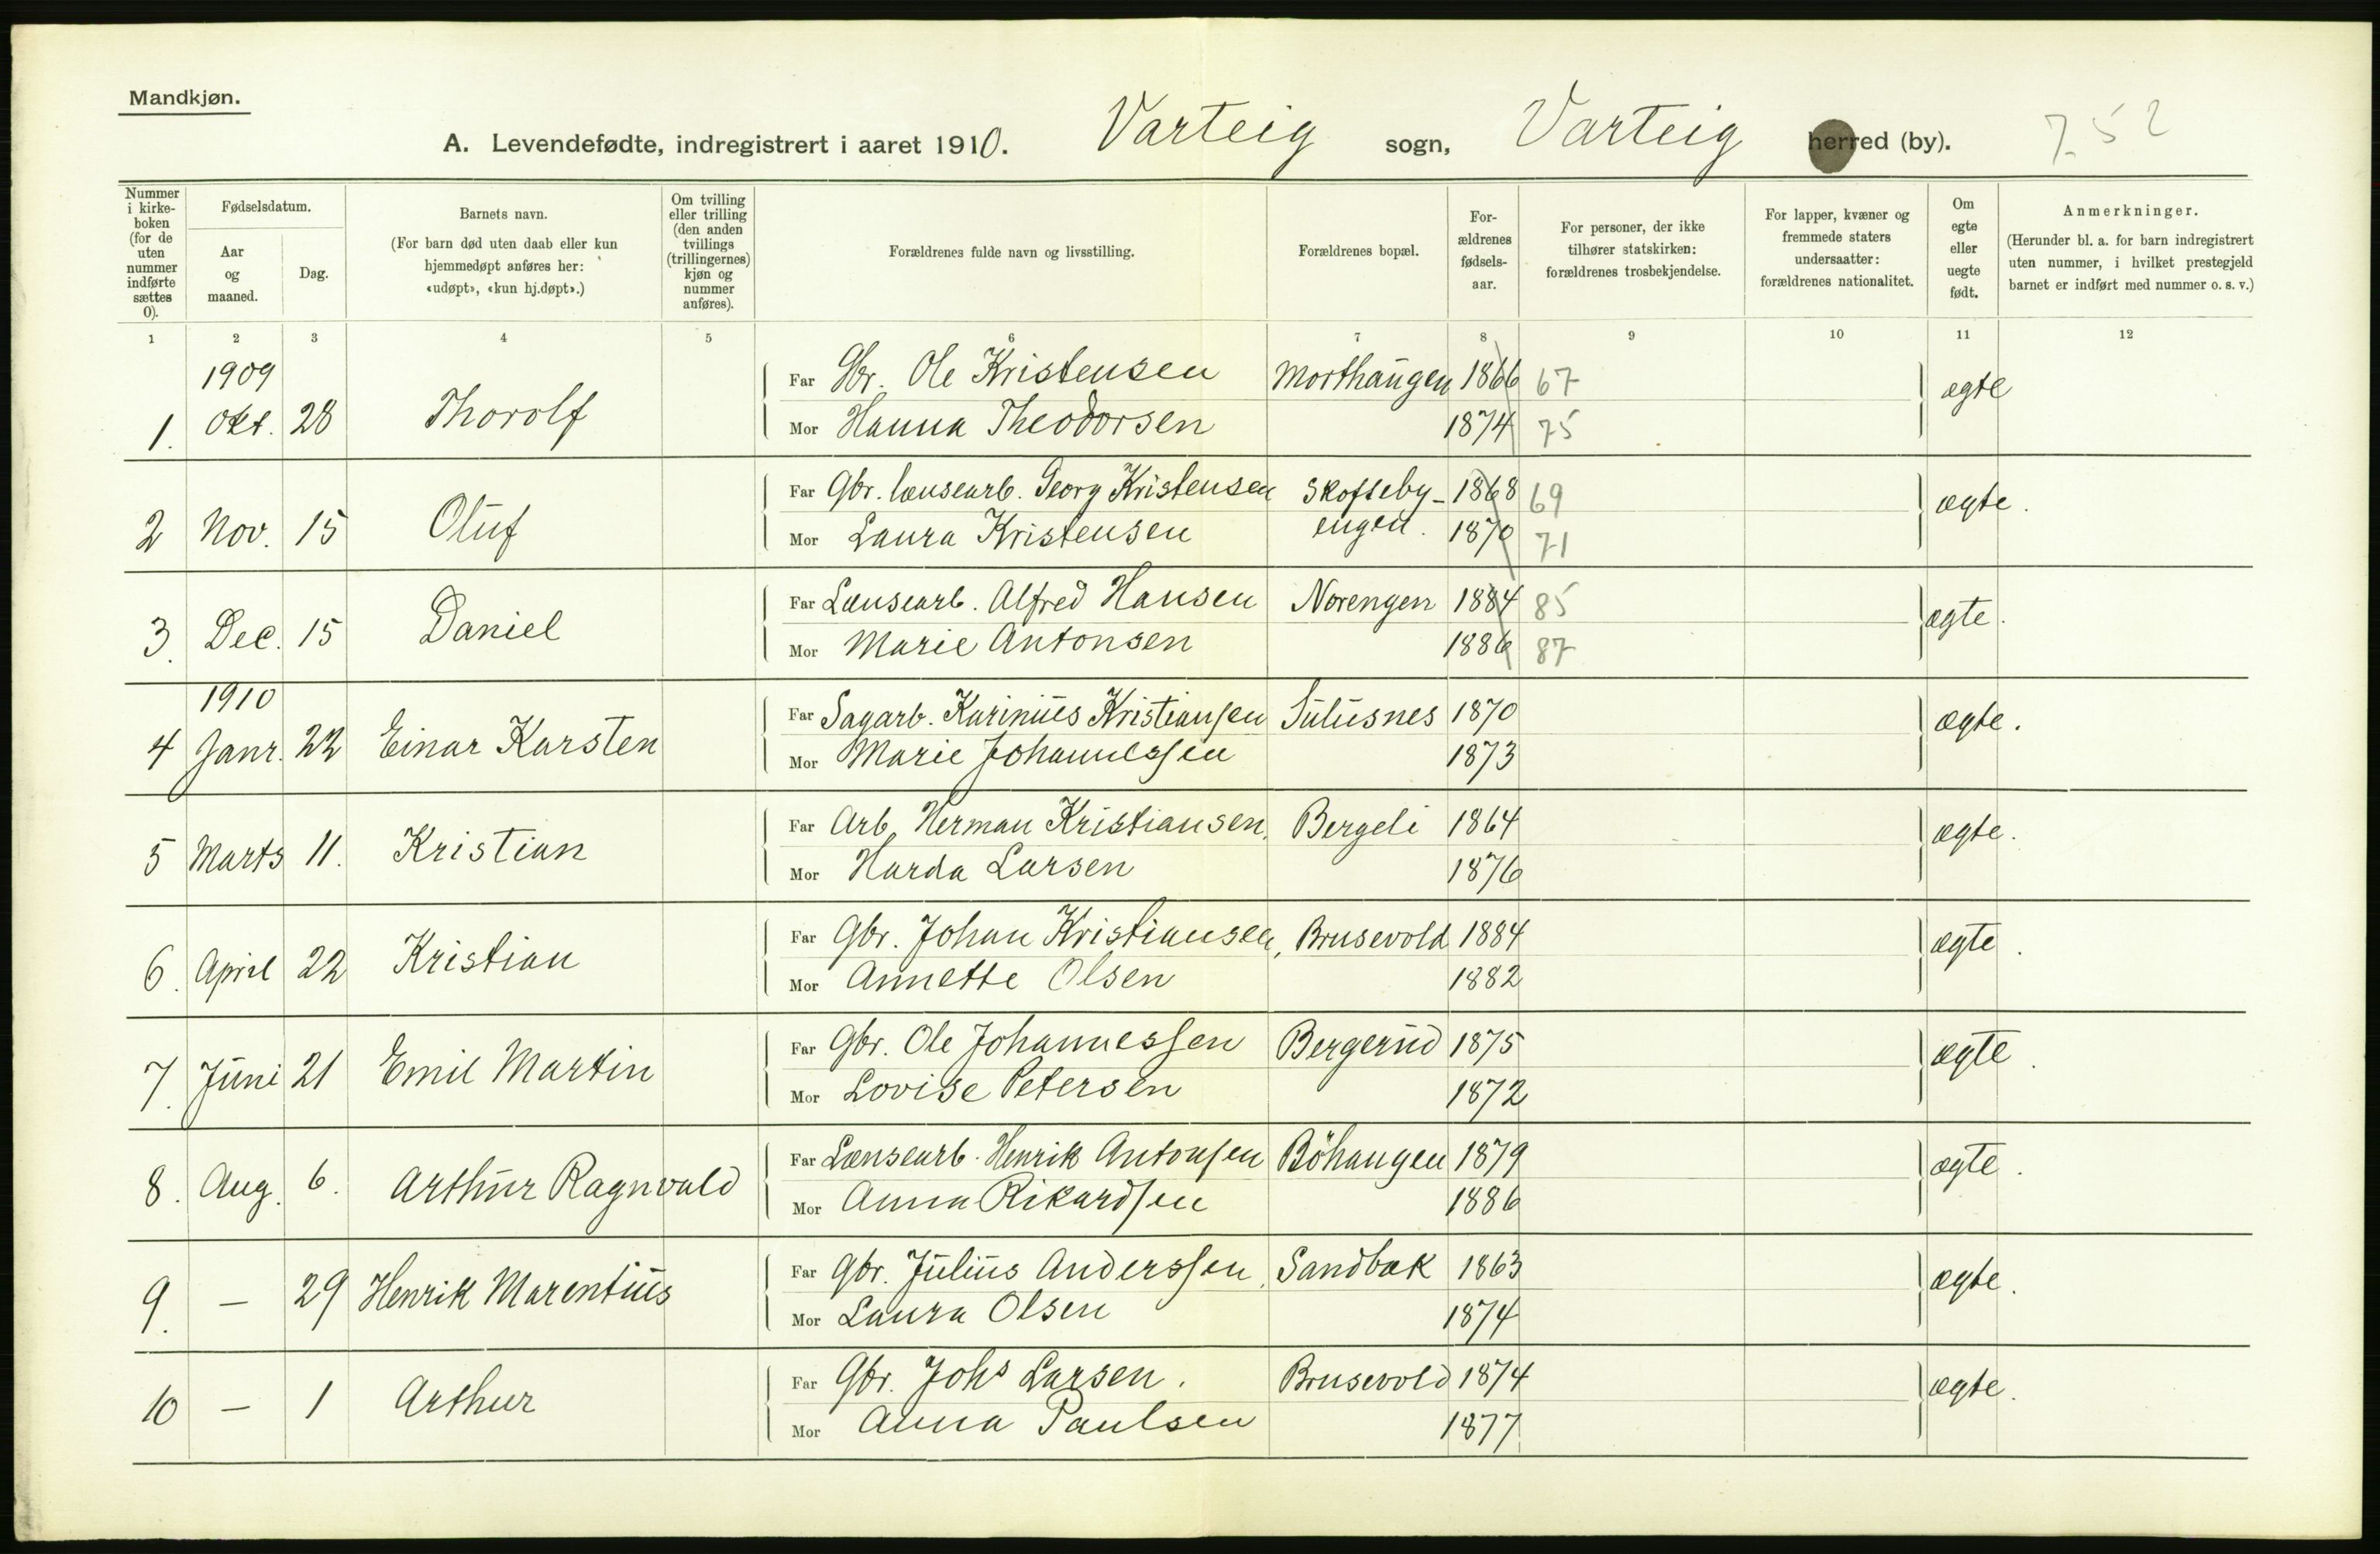 Mandkjøn.
A. Levendefødte, indregistrert i aaret 1910. Varteig sogn, Varteig herred (by). 7.52
Nummer i kirkeboken (for de uten nummer indførte sættes 0).
Fødselsdatum.
Aar og maaned.
Dag.
Barnets navn.
(For barn død uten daab eller kun hjemmedøpt anføres her: «udøpt», «kun hj.døpt».)
Om tvilling eller trilling (den anden tvillings (trillingernes) kjøn og nummer anføres).
Forældrenes fulde navn og livsstilling.
Forældrenes bopæl.
Forældrenes fødselsaar.
For personer, der ikke tilhører statskirken: forældrenes trosbekjendelse.
For lapper, kvæner og fremmede staters undersaatter: forældrenes nationalitet.
Om egte eller uegte født.
Anmerkninger.
(Herunder bl. a. for barn indregistrert uten nummer, i hvilket prestegjeld barnet er indført med nummer o. s. v.)
1 2 3 4 5 6 7 8 9 10 11 12
1909
1. Okt. 28 Thorolf Far Gbr. Ole Kristensen Morthaugen 1866 67 ægte
Mor Hanna Theodorsen 1874 75
2 Nov. 15 Oluf Far Gbr. lænsearb. Georg Kristensen Skofteby- 1868 69 ægte.
Mor Laura Kristensen engen. 1870 71
3. Dec. 15 Daniel Far Lænsearb. Alfred Hansen Norengen 1884 85 ægte.
Mor Marie Antonsen 1886 87
1910
4 Janr. 22 Einar Karsten Far Sagarb. Karinius Kristiansen Sulusnes 1870 ægte.
Mor Marie Johannessen 1873
5 Marts 11. Kristian Far Arb. Herman Kristiansen. Bergeli 1864 ægte.
Mor Harda Larsen 1876
6. April 22 Kristian Far Gbr. Johan Kristiansen, Brusevold 1884 ægte.
Mor Annette Olsen 1882
7. Juni 21 Emil Martin Far Gbr. Ole Johannessen Bergerud 1875 ægte.
Mor Lovise Petersen 1872
8. Aug. 6. Arthur Ragnvald Far Lænsearb. Henrik Antonsen Böhaugen 1879 ægte.
Mor Anna Rikardsen 1886
9. — 29 Henrik Marentius Far Gbr. Julius Anderssen. Sandbæk 1863 ægte.
Mor Laura Olsen 1874
10 — 1 Arthur Far Gbr. Johs Larsen. Brusevold 1874 ægte.
Mor Anna Paulsen 1877